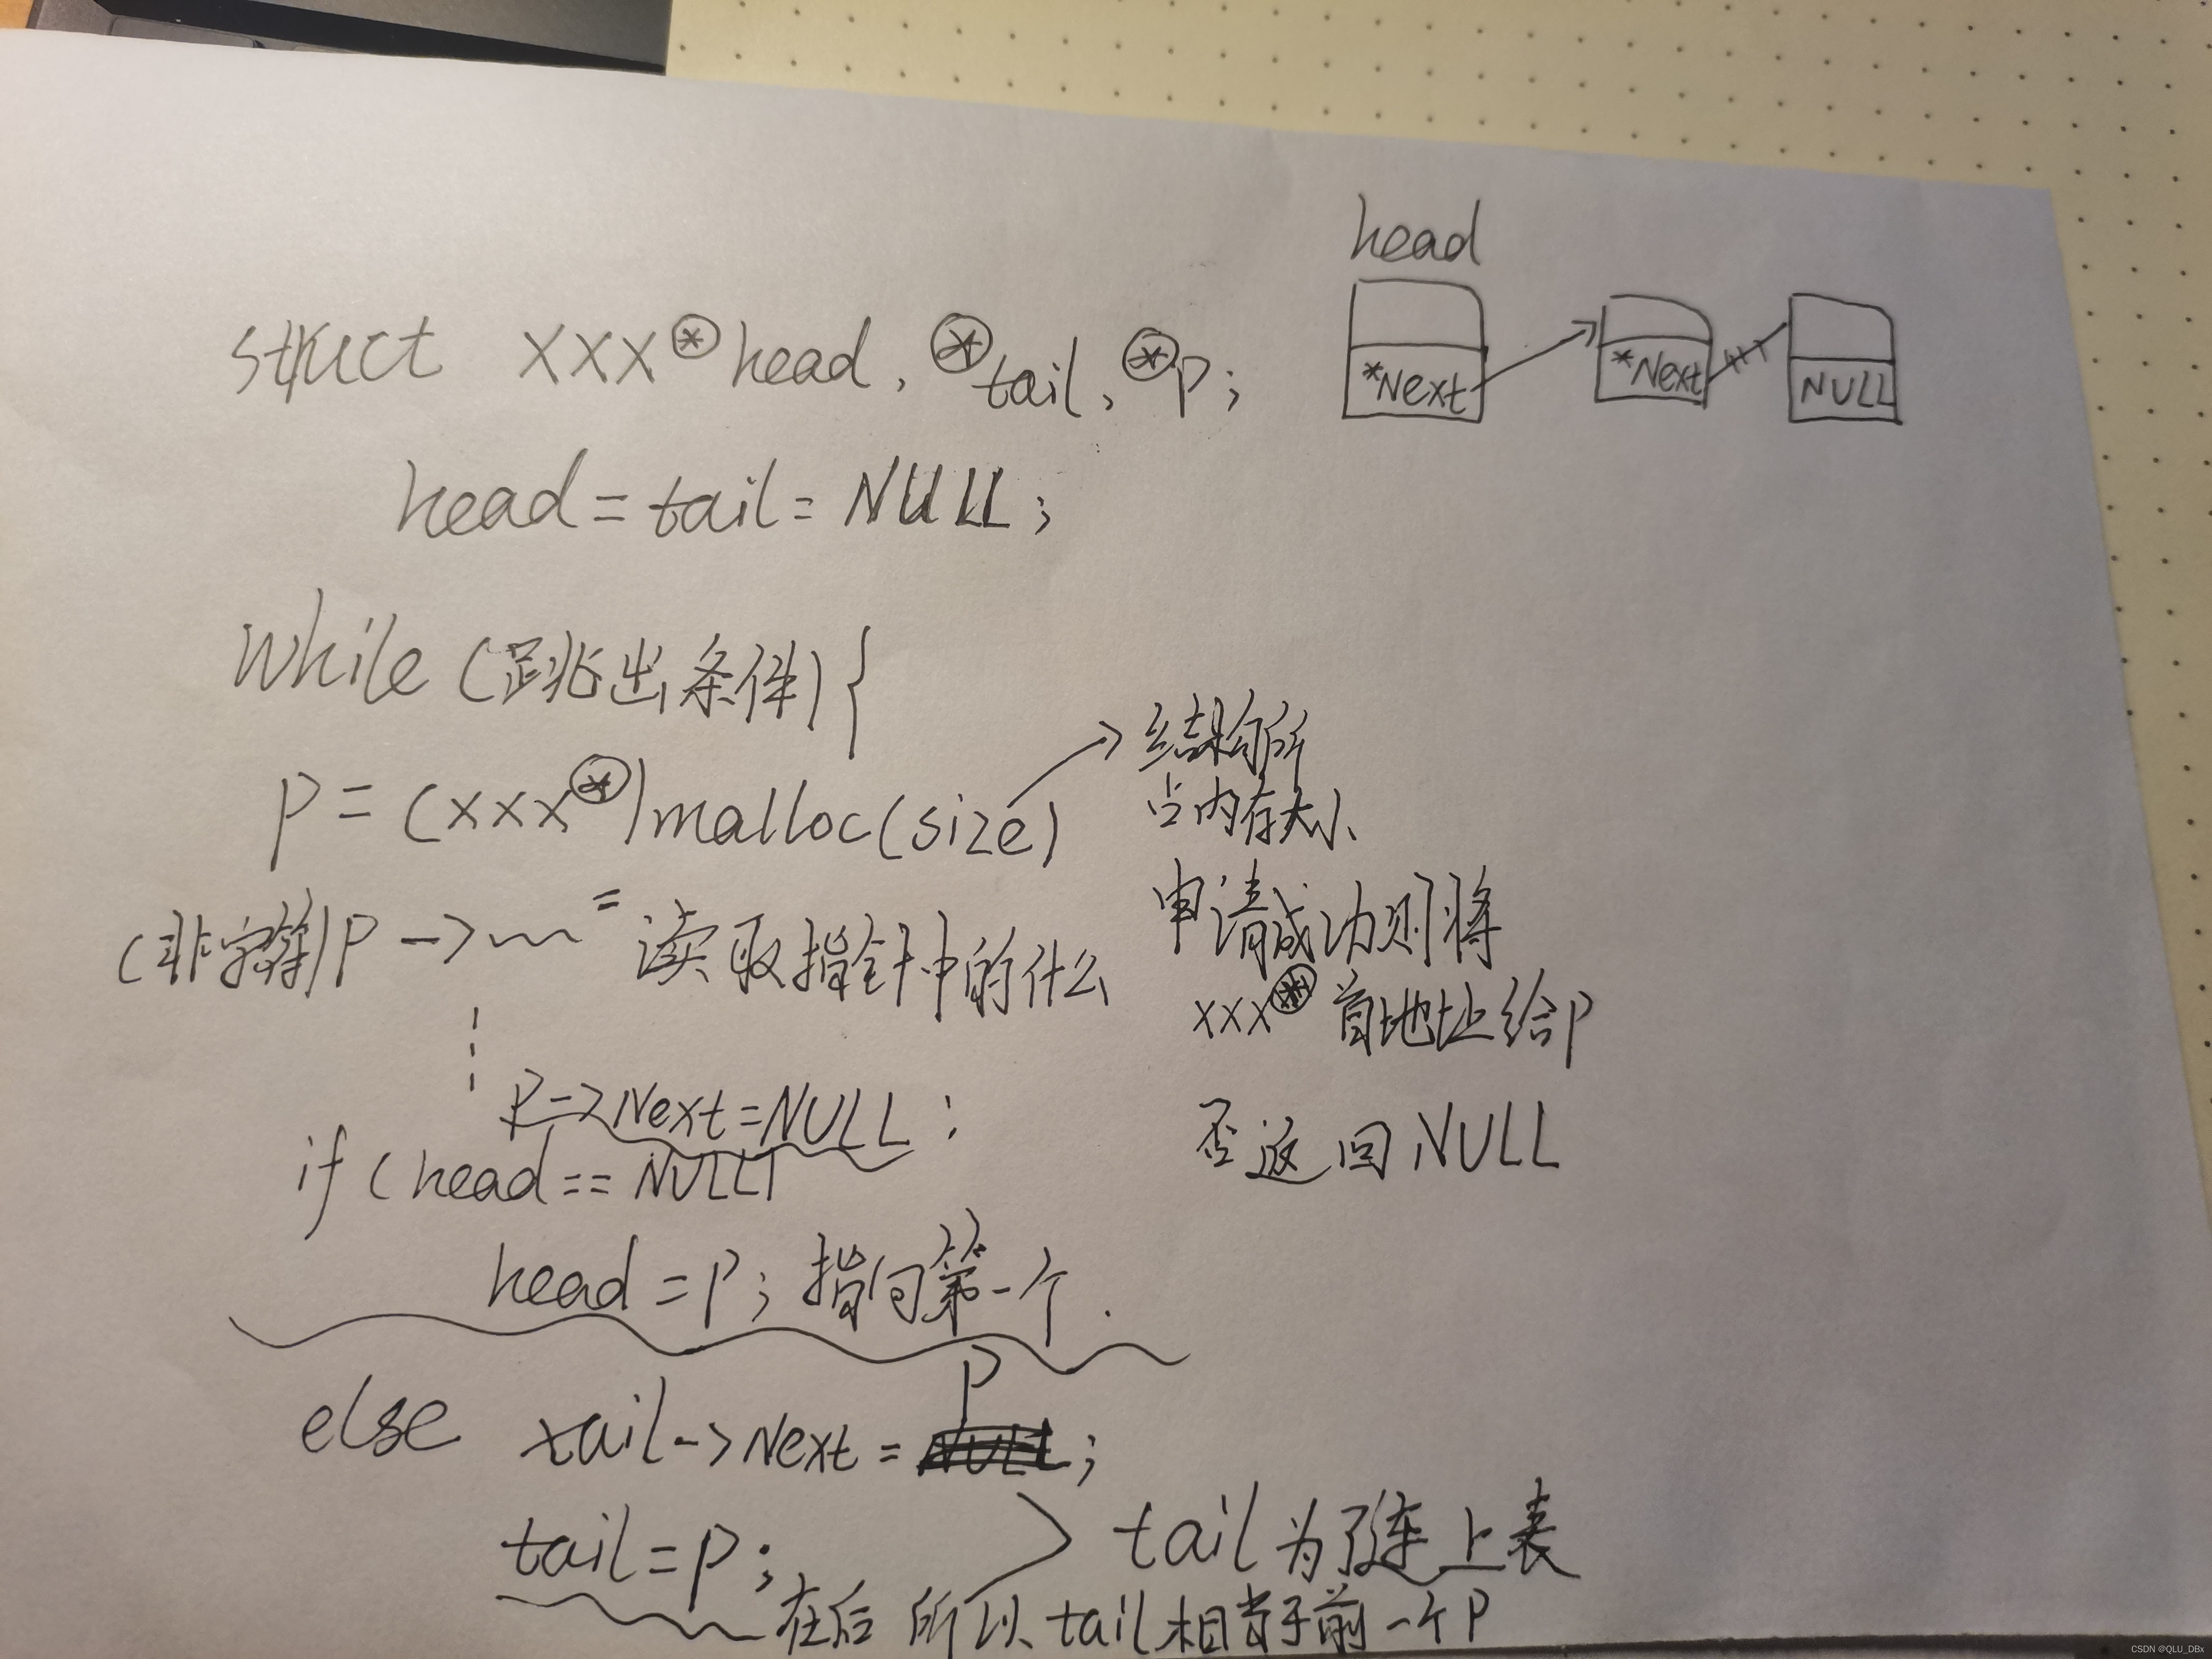 head
*Next
*Next
NULL
struct xxx * head, * tail, * p;
head = tail = NULL;
while (跳出条件) {
p = (xxx *) malloc(size)
结构所
占内存大小
(非字符) p -> = 读取指针中的什么
申请成功则将
xxx * 首地址给p
否返回 NULL
p->Next=NULL;
if (head == NULL)
head = p; 指向第一个.
else tail->Next = p;
tail = p;
tail为了连上表
在后 所以 tail相当于前一个p
CSDN @QLU_DBx